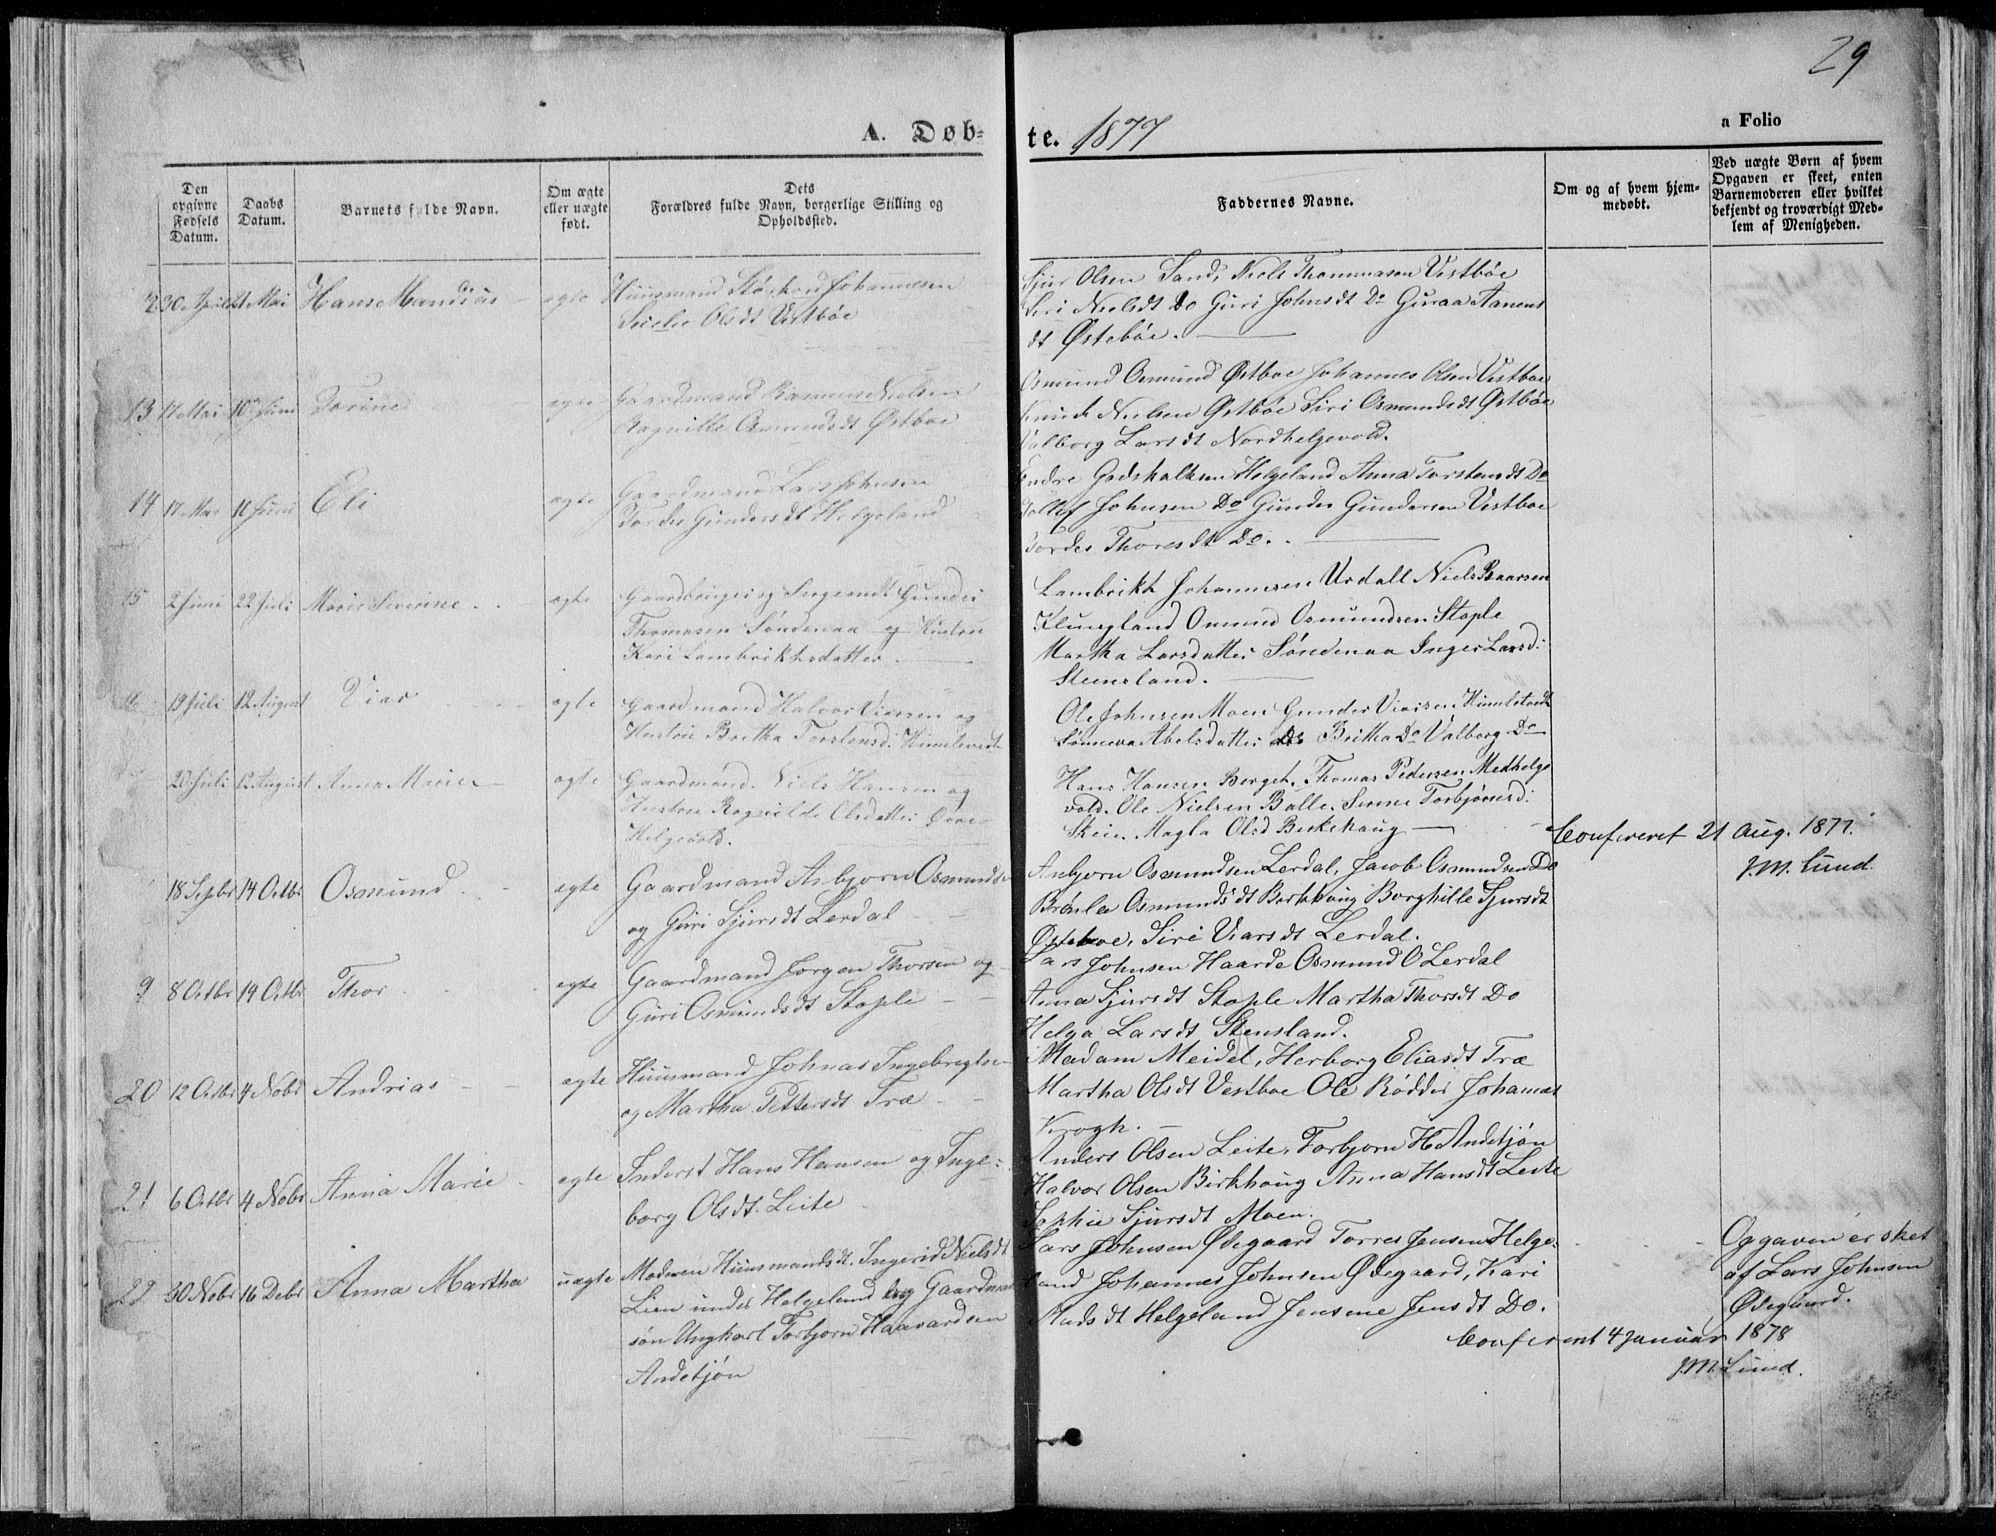 29
A. Døb-
te. 1877
a Folio
Den opgivne Fødsels Datum.
Daabs Datum.
Barnets fulde Navn.
Om ægte eller uægte født.
Dets Forældres fulde Navn, borgerlige Stilling og Opholdssted.
Faddernes Navne.
Om og af hvem hjemmedøbt.
Ved uægte Børn af hvem Opgaven er skeet, enten Barnemoderen eller hvilket bekjendt og troværdigt Medlem af Menigheden.
30 April 21 Mai Hans Mandius ægte Huusmand Johannesen
Olsdt Vestbøe
Sjur Olsen Sand, Niels Thommasen Vestbøe
Siri Nielsdt Do Guri Johnsdt Do Guroa Aanens
dt Østebøe.
13 17 Mai 10 Juni Torine ægte Gaardmand Rasmus Nielsen
Ragnille Osmundsdt Østboe
Osmund Osmund Østboe Johannes Olsen Vestboe
Knud Nielsen Østbøe Siri Osmundsdt Østbøe
Valborg Larsdt Nordhelgevold.
14 17 Mai 10 Juni Eli ægte Gaardmand Lars Johnsen
Tordes Gundersdt Helgeland
Endre Godskalksen Helgeland Anna Torstensdt Do
Tollef Johnsen Do Gunder Gundersen Vestboe
Tordes Thoresdt Do.
15 2 Juni 22 Juli Marie Severine ægte Gaardbruger og Sergeandt Gunder
Thomasen Søndenaa og Hustru
Kari Lambrikhsdatter.
Lambrikh Johannesen Urdall Niels Baarsen
Klungland Omund Osmundsen Stople
Martha Larsdatter Søndenaa Inger Larsd:
Steensland.
19 Juli 12 August Viar ægte Gaardmand Halvor Viarsen og
Hustru Britha Torstensd.
Ole Johnsen Moen Gunder Viarsen
Abelsdatter Do Britha Do Valborg Do
Juli 12 August Anna Marie ægte Gaardmand Niels Hansen og
Hustru Ragnilde Olsdatter Øvre
Helgevold.
Hans Hansen Berget, Thomas Pedersen Medhelge
vold. Ole Nielsen Balle, Serine Torbjørnsd:
Skeie Magla Olsd Birkehaug
Confereret 21 Aug. 1877.
J.M. Lund.
18 Septbr 14 Octbr Osmund ægte Gaardmand Asbjørn Osmundsen
og Guri Sjursdt Lerdal
Anbjorn Osmundsen Lerdal, Jacob Osmundsen Do
Osmundsdt Birkhoug Borghille Sjursdt
Østebøe, Siri Viarsdt Lerdal.
9 8 Octbr 14 Octbr Thor ægte Gaardmand Jørgen Thorsen og
Guri Osmundsdt Stople
Lars Johnsen Haarde Osmund O Lerdal
Anna Sjursdt Stople Martha Thorsdt Do
Helga Larsdt Stensland.
20 12 Octbr 4 Nobr Andrias ægte Huusmand Johnas Ingebregtsen
og Martha Pettersdt Træ
Madam Meidel, Herborg Eliasdt Træ
Martha Olsdt Vestboe Ole Rødder Johannes
Krogh.
21 6 Octbr 4 Nobr Anna Marie ægte Inderst Hans Hansen og Inge-
borg Olsdt. Leite
Anders Olsen Leite, Torbjorn H Andetjøn
Halvor Olsen Birkhoug Anna Hansdt Leite
Sophie Sjursdt Moen.
22 30 Nobr 16 Debr Anna Martha uægte Moderen Huusmandsdt. Ingerid Nielsdt
Lien under Helgeland og Gaardmand
søn Ungkarl Torbjorn Haavardsen
Andetjøn
Lars Johnsen Ødegaard Torres Jensen Helge-
land Johannes Johnsen Ødegaard, Kari
Madsdt Helgeland Jensine Jensdt Do.
Opgaven er sket
af Lars Johnsen
Ødegaard.
Confereret 4 Januar 1878
J.M. Lund.